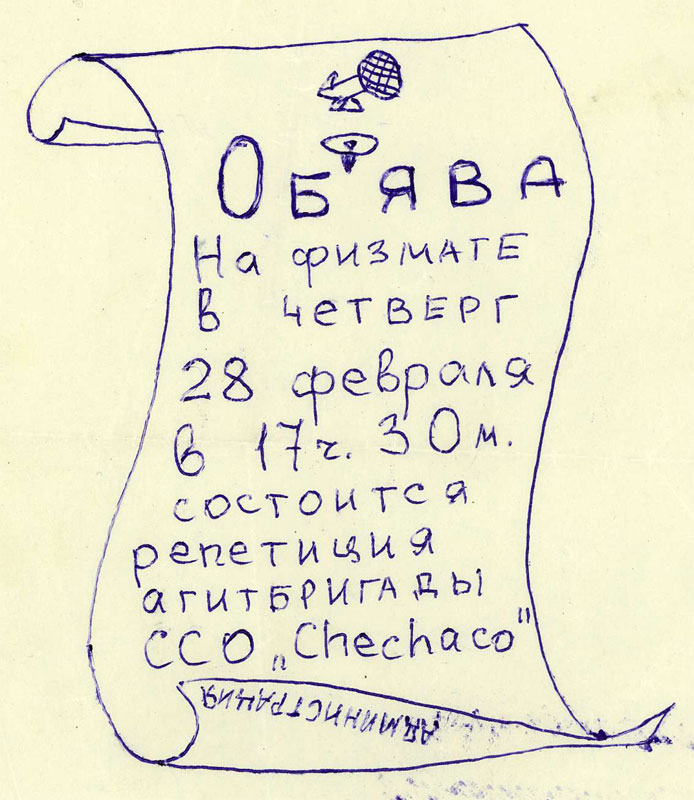 Об'ява
На физмате
в четверг
28 февраля
в 17ч. 30м.
состоится
репетиция
агитбригады
ССО „Chechaco"
АДМИНИСТРАЦИЯ